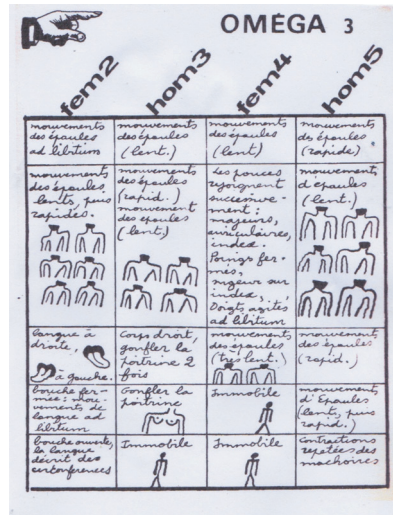 OMEGA 3
fem2
hom3
fem4
hom5
mouvements
des épaules
ad libitum
mouvements
des épaules
(lent.)
mouvements
des épaules
(lent)
mouvements
des épaules
(rapide)
mouvements
des épaules,
lents, puis
rapides.
mouvements
des épaules
(rapid.)
mouvement
des epaules
(lent.)
Les pouces
rejoignent
successive-
ment :
majeurs,
auriculaires,
index.
Poings fer-
més,
majeur sur
index,
Doigts agités
ad libitum
mouvements
d'epaules
(lent.)
langue à
droite,
à gauche.
Corps droit,
gonfler la
poitrine 2
fois
mouvements
des épaules
(très lent.)
mouvements
des épaules
(rapid.)
bouche fer-
mée : mou-
vements de
langue ad
libitum
Gonfler la
poitrine
Immobile
mouvements
d'Epaules
(lent, puis
rapid.)
bouche ouverte,
la langue
décrit des
circonférences
Immobile
Immobile
Contractions
répétées des
machoires